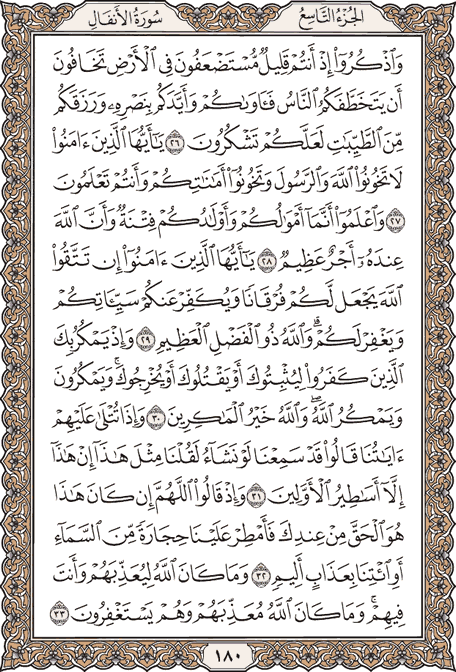 الجزء التاسع
سورة الأنفال
وَاذْكُرُوٓا۟ إِذْ أَنتُمْ قَلِيلٌ مُّسْتَضْعَفُونَ فِى ٱلْأَرْضِ تَخَافُونَ
أَن يَتَخَطَّفَكُمُ ٱلنَّاسُ فَـَٔاوَىٰكُمْ وَأَيَّدَكُم بِنَصْرِهِۦ وَرَزَقَكُم
مِّنَ ٱلطَّيِّبَـٰتِ لَعَلَّكُمْ تَشْكُرُونَ ٢٦ يَـٰٓأَيُّهَا ٱلَّذِينَ ءَامَنُوا۟
لَا تَخُونُوا۟ ٱللَّهَ وَٱلرَّسُولَ وَتَخُونُوٓا۟ أَمَـٰنَـٰتِكُمْ وَأَنتُمْ تَعْلَمُونَ
٢٧ وَٱعْلَمُوٓا۟ أَنَّمَآ أَمْوَٰلُكُمْ وَأَوْلَـٰدُكُمْ فِتْنَةٌ وَأَنَّ ٱللَّهَ
عِندَهُۥٓ أَجْرٌ عَظِيمٌ ٢٨ يَـٰٓأَيُّهَا ٱلَّذِينَ ءَامَنُوٓا۟ إِن تَتَّقُوا۟
ٱللَّهَ يَجْعَل لَّكُمْ فُرْقَانًا وَيُكَفِّرْ عَنكُمْ سَيِّـَٔاتِكُمْ
وَيَغْفِرْ لَكُمْ ۗ وَٱللَّهُ ذُو ٱلْفَضْلِ ٱلْعَظِيمِ ٢٩ وَإِذْ يَمْكُرُ بِكَ
ٱلَّذِينَ كَفَرُوا۟ لِيُثْبِتُوكَ أَوْ يَقْتُلُوكَ أَوْ يُخْرِجُوكَ ۚ وَيَمْكُرُونَ
وَيَمْكُرُ ٱللَّهُ ۖ وَٱللَّهُ خَيْرُ ٱلْمَـٰكِرِينَ ٣٠ وَإِذَا تُتْلَىٰ عَلَيْهِمْ
ءَايَـٰتُنَا قَالُوا۟ قَدْ سَمِعْنَا لَوْ نَشَآءُ لَقُلْنَا مِثْلَ هَـٰذَآ إِنْ هَـٰذَآ
إِلَّآ أَسَـٰطِيرُ ٱلْأَوَّلِينَ ٣١ وَإِذْ قَالُوا۟ ٱللَّهُمَّ إِن كَانَ هَـٰذَا
هُوَ ٱلْحَقَّ مِنْ عِندِكَ فَأَمْطِرْ عَلَيْنَا حِجَارَةً مِّنَ ٱلسَّمَآءِ
أَوِ ٱئْتِنَا بِعَذَابٍ أَلِيمٍ ٣٢ وَمَا كَانَ ٱللَّهُ لِيُعَذِّبَهُمْ وَأَنتَ
فِيهِمْ ۚ وَمَا كَانَ ٱللَّهُ مُعَذِّبَهُمْ وَهُمْ يَسْتَغْفِرُونَ ٣٣
١٨٠